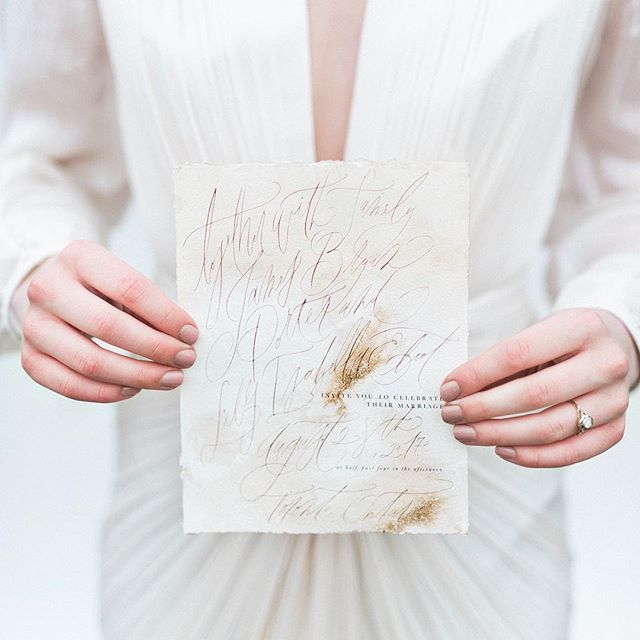 together with family
James B
Porter and
Lily Isabella
INVITE YOU TO CELEBRATE
THEIR MARRIAGE
August 28th
2017
at half past four in the afternoon
Toronto Ontario